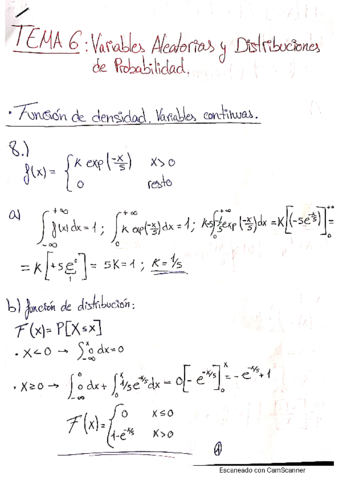 TEMA 6: Variables Aleatorias y Distribuciones
de Probabilidad.
· Función de densidad. Variables continuas.
8.)
f(x) = { K exp(-x/5) x>0
0 resto
a) ∫_{-∞}^{+∞} f(x)dx = 1; ∫_0^{+∞} K exp(-x/5)dx = 1; K·5∫_0^{+∞} 1/5 exp(-x/5)dx = K[(-5e^{-x/5})]_0^{+∞} =
= K[+5e^0] = 5K = 1; K = 1/5
b) función de distribución:
F(x) = P[X≤x]
· X<0 → ∫_{-∞}^x 0dx = 0
· X≥0 → ∫_{-∞}^0 0dx + ∫_0^x 1/5 e^{-x/5}dx = 0[-e^{-x/5}]_0^x = -e^{-x/5} + 1
F(x) = { 0 x≤0
1-e^{-x/5} x>0
1
Escaneado con CamScanner